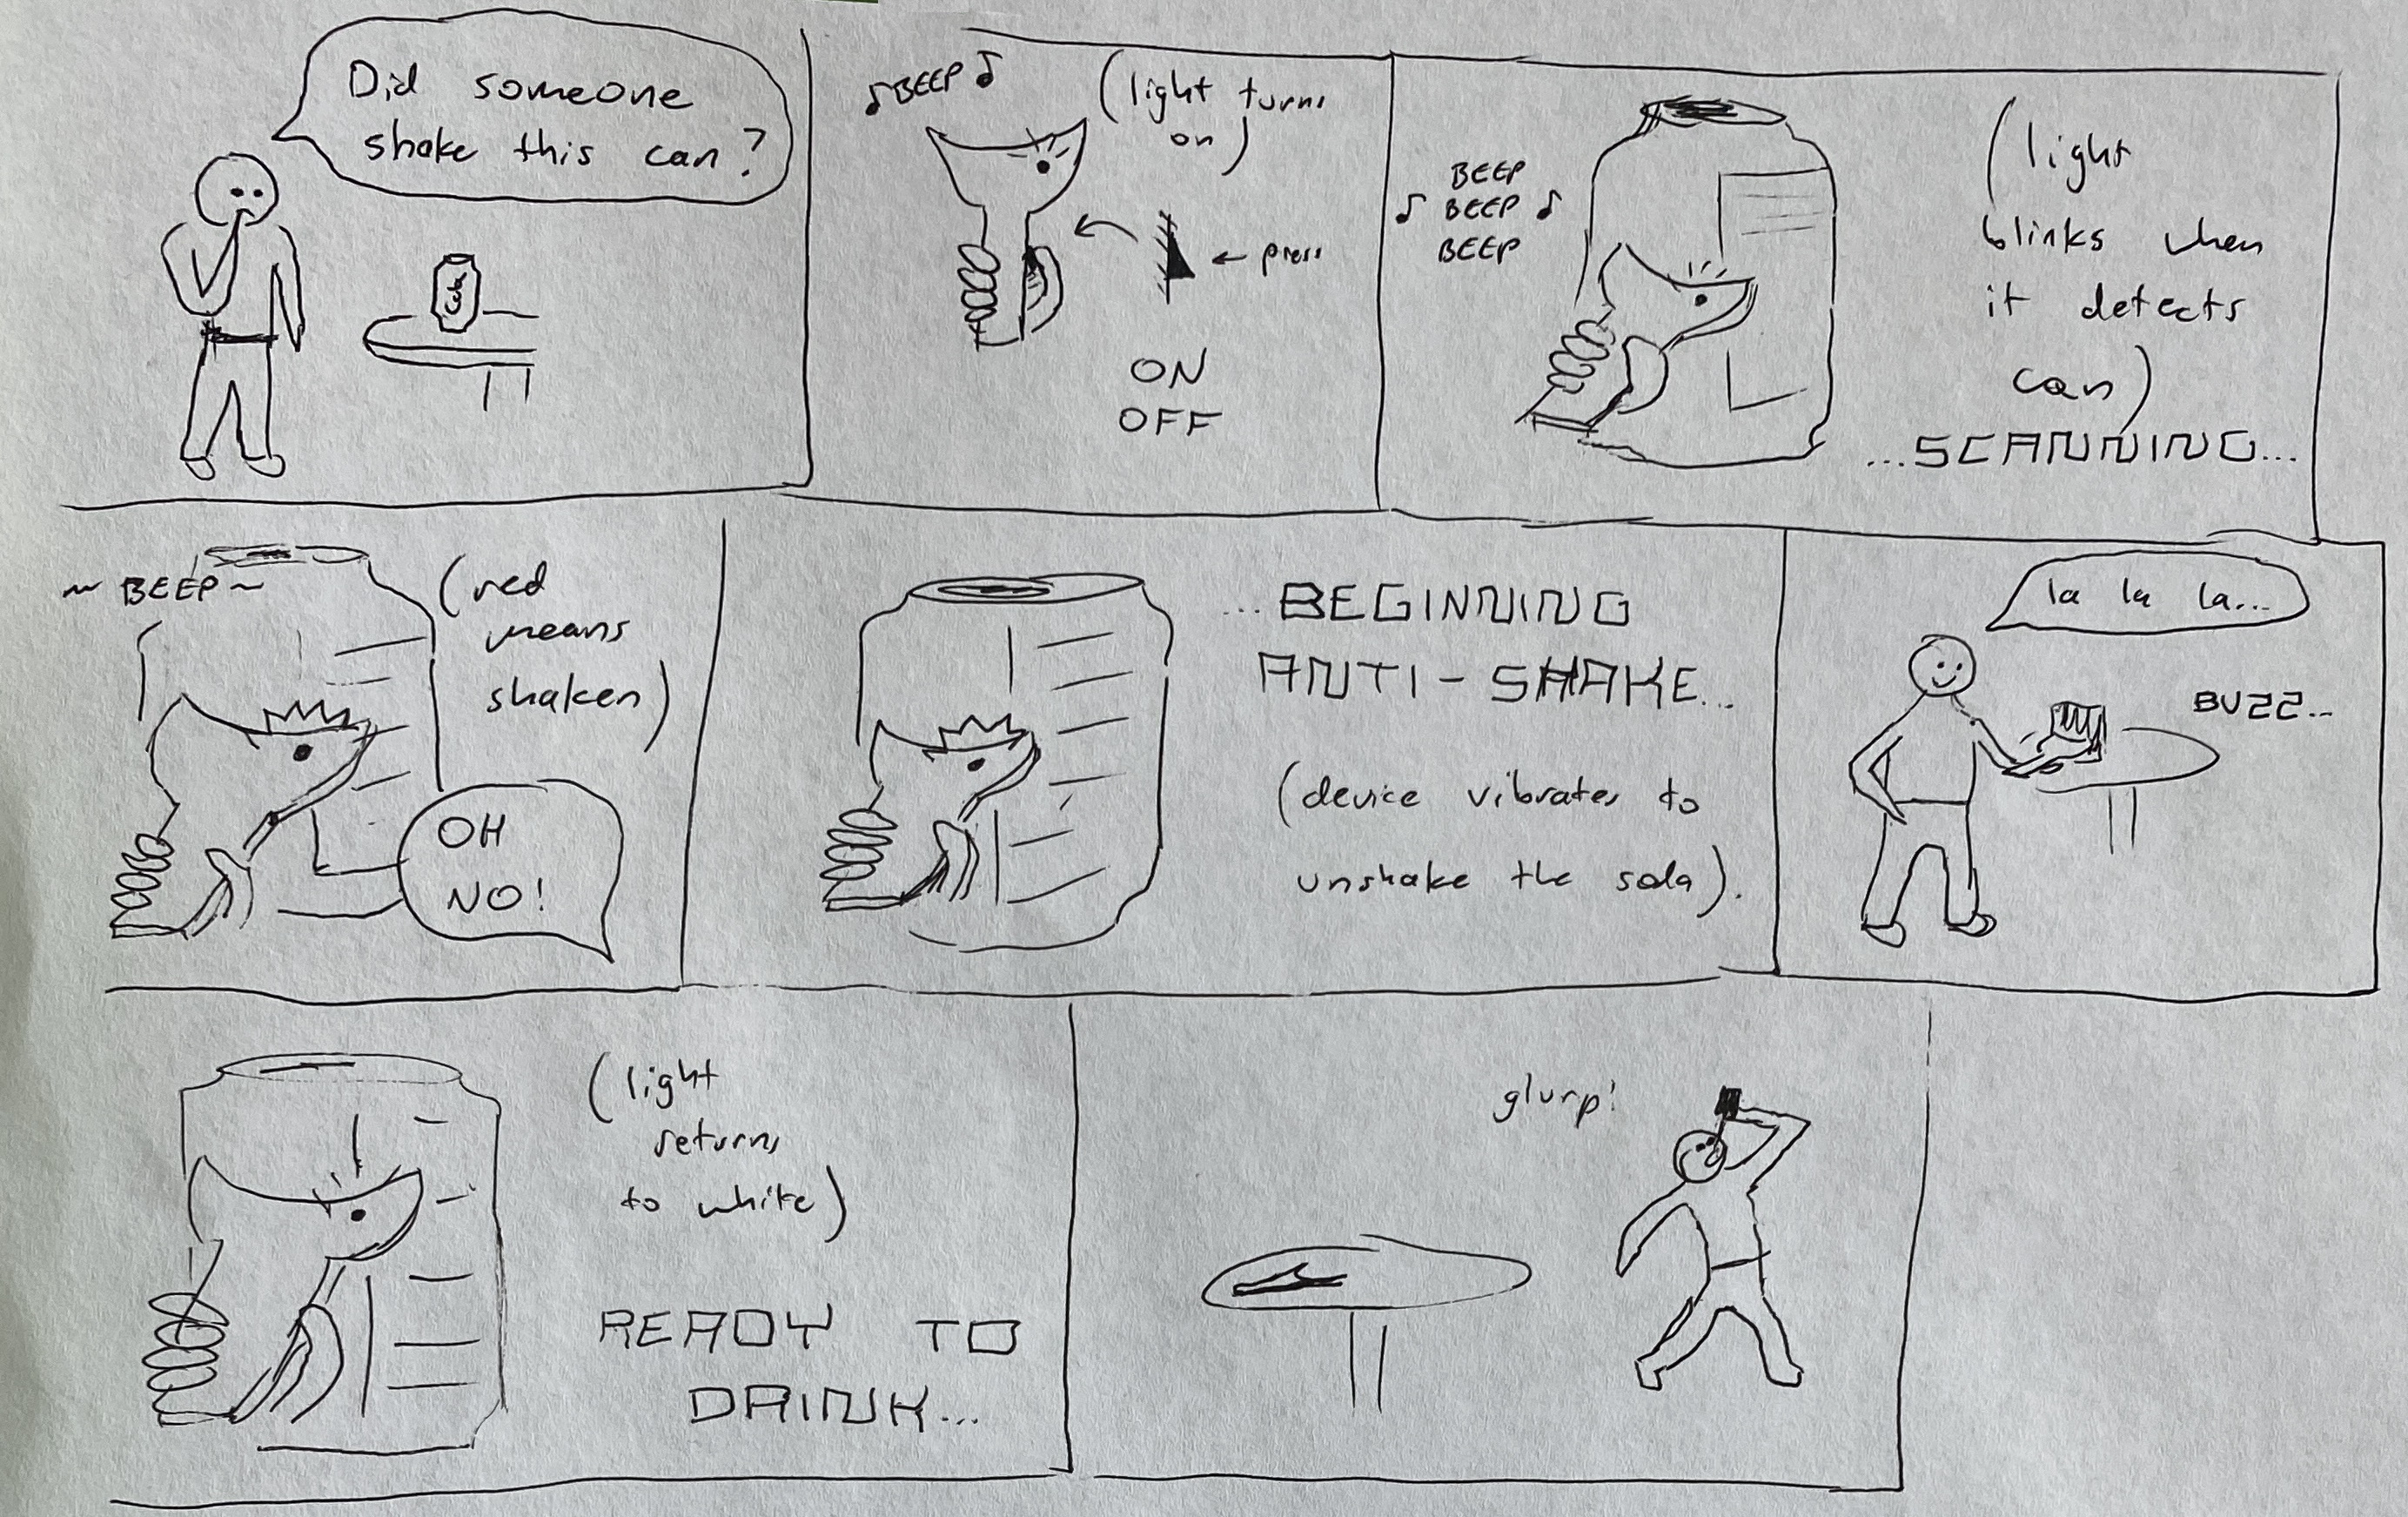 Did someone
shake this can?
Coke
♪BEEP♪
(light turns
on)
← press
ON
OFF
BEEP
♪ BEEP ♪
BEEP
(light
blinks when
it detects
can)
...SCANNING...
~ BEEP ~
(red
means
shaken)
OH
NO!
...BEGINNING
ANTI-SHAKE...
(device vibrates to
unshake the soda).
la la la...
BUZZ...
(light
returns
to white)
READY TO
DRINK...
glurp!